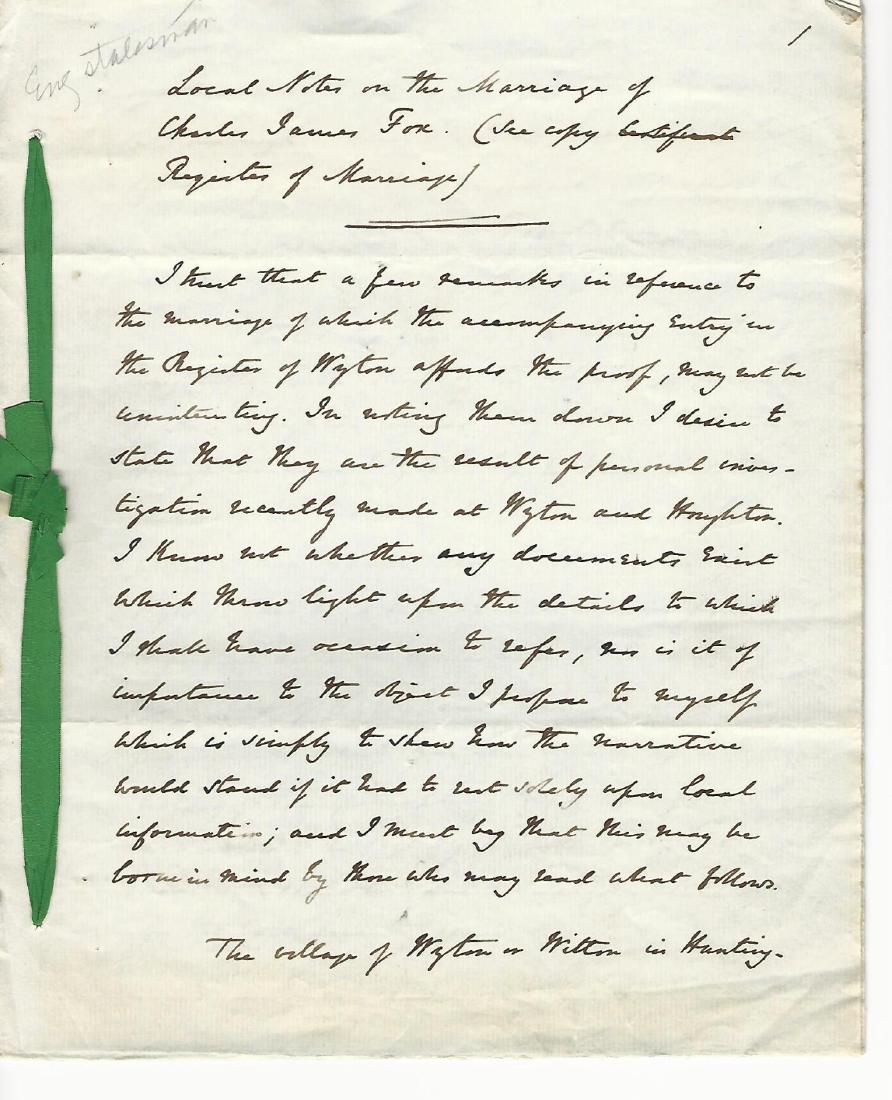 1
Eng statesman
Local Notes on the Marriage of
Charles James Fox. (See copy certificate
Register of Marriage)
I trust that a few remarks in reference to
the marriage of which the accompanying Entry in
the Register of Wyton affords the proof, may not be
uninteresting. In noting them down I desire to
state that they are the result of personal inves-
tigation recently made at Wyton and Houghton.
I know not whether any documents Exist
which throw light upon the details to which
I shall have occasion to refer, nor is it of
importance to the object I propose to myself
which is simply to shew how the narrative
would stand if it had to rest solely upon local
information; and I must beg that this may be
borne in mind by those who may read what follows.
The village of Wyton or Witton in Hunting-